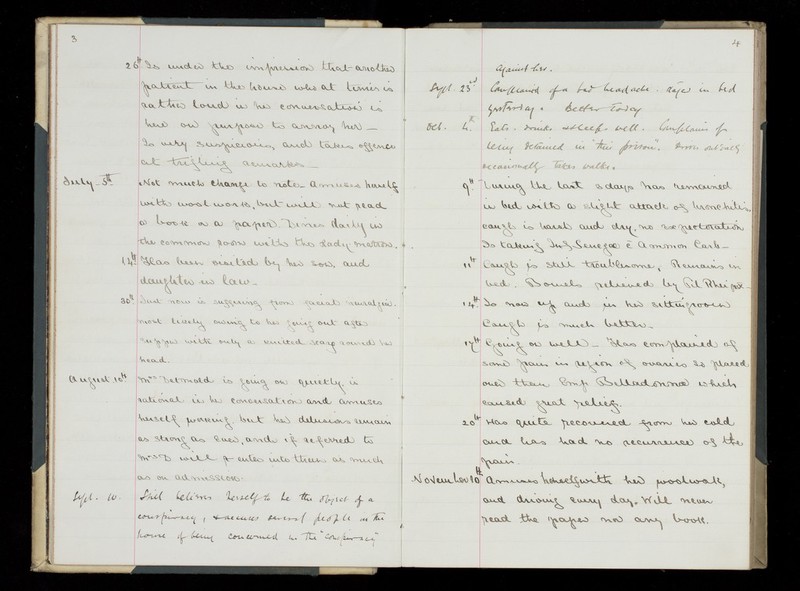 3
26th Is under the impression that another
patient in the house who at times is
rather loud in her conversation is
here on purpose to annoy her —
Is very suspicious and takes offence
at trifling remarks —
July 5th Not much change to note amuses herself
with wool work, but will not read
a book or a paper. Dines daily in
the common room with the lady matron.
14th Has been visited by her son, and
daughter in law —
30th Just now is suffering from facial neuralgia
most likely owing to her going out after
supper with only a knitted scarf round her
head.
August 10th Mrs Detmold is going on quietly is
rational in her conversation and amuses
herself working but her delusions remain
as strong as ever, and if referred to
Mrs D will enter into them as much
as on admission.
Sept. 10. Still believes herself to be the object of a
conspiracy, & accuses several people in the
house of being concerned in the "conspiracy"
4
against her.
Sept. 23rd Complained of a bad headache. Stayed in bed
yesterday. Better today
Oct. 4th Eats, drinks & sleeps well. Complains of
being detained in this "prison".
occasionally takes walks.
9th During the last 2 days has remained
in bed with a slight attack of bronchitis
cough is harsh and dry, no expectoration
Is taking Inf Senegae c Ammon Carb —
11th Cough is still troublesome, Remains in
bed. Bowels relieved by Pil Rhei
14th Is now up and in her sittingroom
Cough is much better —
17th Going on well — Has complained of
some pain in region of ovaries so placed
over them Emp Belladonna which
caused great relief.
20th Has quite recovered from her cold
and has had no recurrence of the
pain.
November 10th Amuses herself with her woolwork,
and driving every day. Will never
read the paper nor any book.